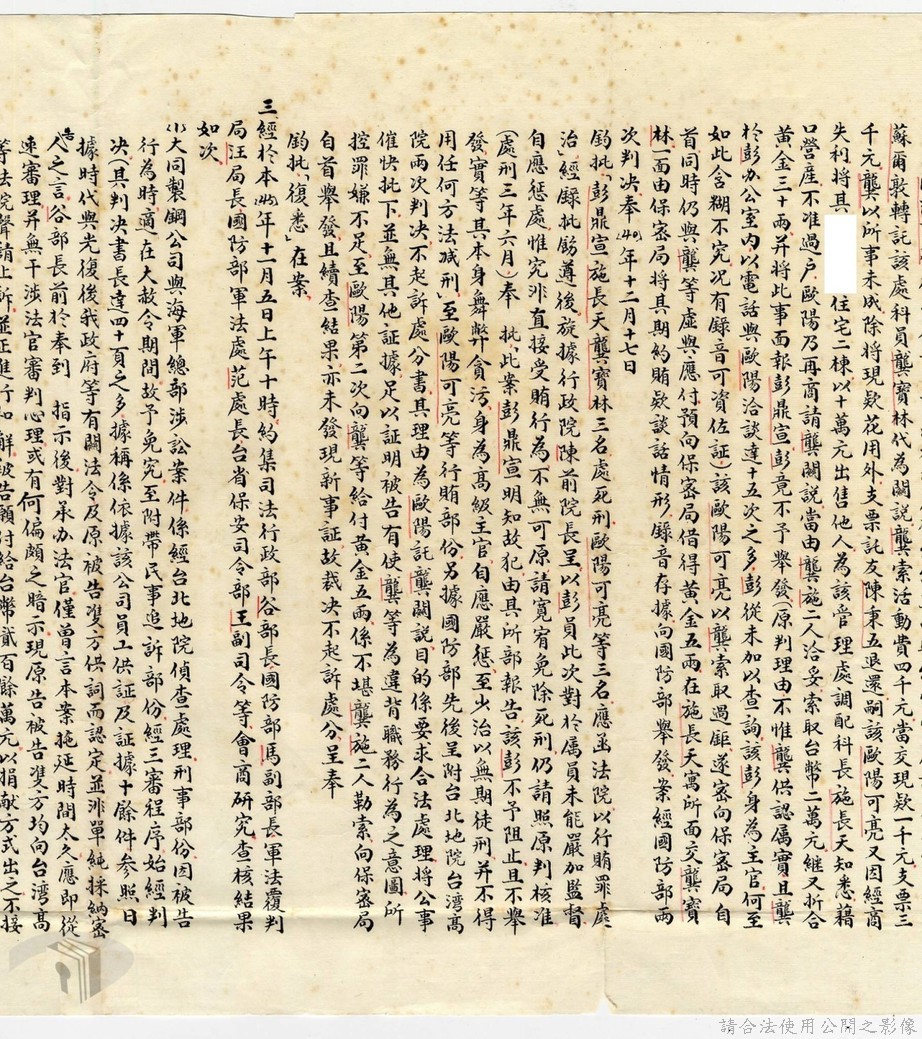 蘇爾敦轉託該處科員龔寶林代為關說龔索活動費四千元當交現欵一千元支票三
千元龔以所事未成除將現欵花用外支票託友陳東五退還嗣該歐陽可亮又因經商
失利將其 住宅二棟以十萬元出售他人為該管理處調配科長施長天知悉藉
口營産不准過户歐陽乃再商請龔關說當由龔施二人洽妥索取台幣二萬元継又折合
黄金三十兩并將此事面報彭鼎宣彭竟不予舉發(原判理由不惟龔供認属實且龔
於彭办公室内以電話與歐陽洽談達十五次之多彭從未加以查詢該彭身為主官何至
如此含糊不究况有錄音可資佐証)該歐陽可亮以龔索取過鉅遂密向保密局自
首同時仍與龔等虛與應付預向保密局借得黄金五兩在施長天寓所面交龔寶
林一面由保密局將其期約賄欵談話情形錄音存據向國防部舉發案經國防部兩
次判决奉(40)年十二月十七日
鈞批「彭鼎宣施長天龔寶林三名處死刑歐陽可亮等三名應函法院以行賄罪處
治」經錄批飭遵後旋據行政院陳前院長呈以彭員此次對於属員未能嚴加監督
自應惩處惟究非直接受賄行為不無可原請寬宥免除死刑仍請照原判核准
(處刑三年六月)奉 批「此案彭鼎宣明知故犯由其所部報告該彭不予阻止且不舉
發實等其本身舞弊貪污身為高級主官自應嚴惩至少治以無期徒刑并不得
用任何方法減刑」至歐陽可亮等行賄部份另據國防部先後呈附台北地院台湾高
院兩次判决不起訴處分書其理由為歐陽託龔關說目的係要求合法處理將公事
催快批下並無其他証據足以証明被告有使龔等為違背職務行為之意圖所
控罪嫌不足至歐陽第二次向龔等給付黄金五兩係不堪龔施二人勒索向保密局
自首舉發且續查結果亦未發現新事証故裁决不起訴處分呈奉
鈞批「復悉」在案
三經於本(45)年十一月五日上午十時約集司法行政部谷部長國防部馬副部長軍法覆判
局汪局長國防部軍法處范處長台省保安司令部王副司令等會商研究查核結果
如次
(1)大同製鋼公司與海軍總部涉訟案件係經台北地院偵查處理刑事部份因被告
行為時適在大赦令期間故予免究至附帶民事追訴部份經三審程序始經判
决(其判决書長達四十頁之多據稱係依據該公司員工供証及証據十餘件参照日
據時代與光復後我政府等有關法令及原被告雙方供詞而認定並非單純採納密
告人之言谷部長前於奉到 指示後對承办法官僅曽言本案拖延時間太久應即從
速審理并無干涉法官審判心理或有何偏頗之暗示現原告被告雙方均向台湾高
等法院聲請上訴並正進行和解被告願付給台幣貳百餘萬元以捐献方式出之不接
請合法使用公開之影像